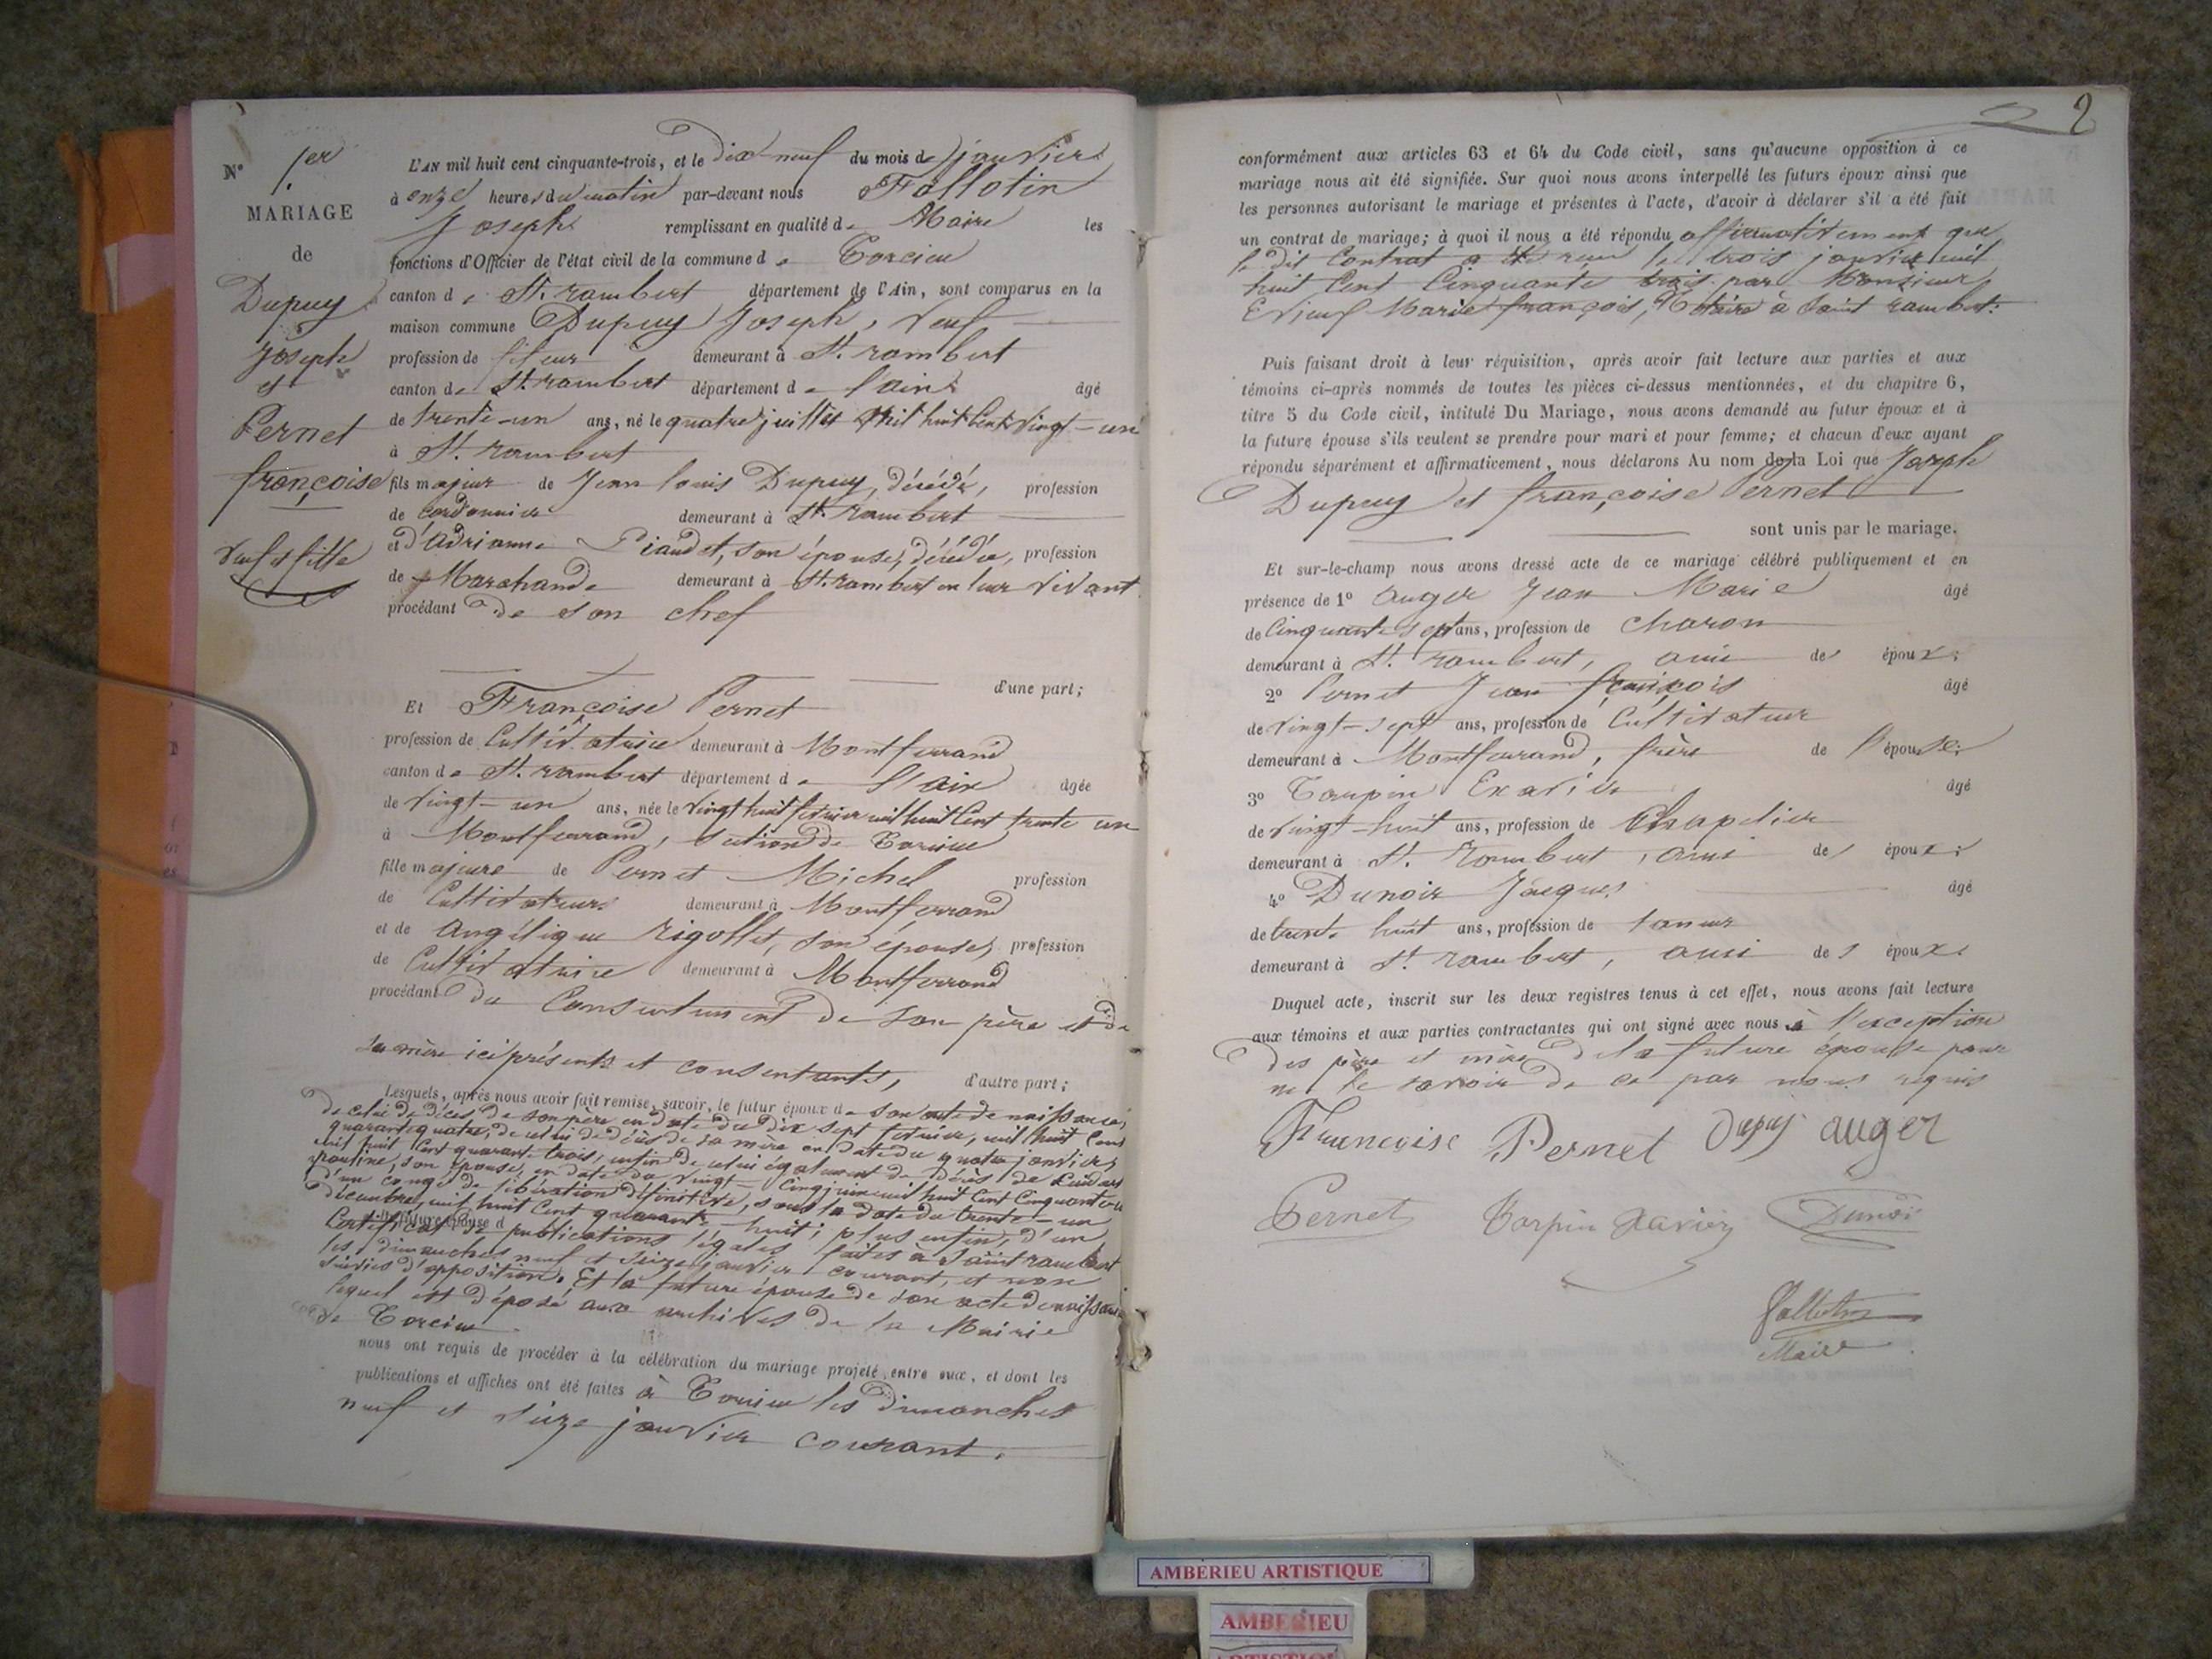 N° 1er
MARIAGE
de
Dupuy
Joseph
et
Pernet
françoise
Veuf et fille
L'AN mil huit cent cinquante-trois, et le dix-neuf du mois de janvier
à onze heures du matin par-devant nous Follotin
Joseph remplissant en qualité de Maire les
fonctions d'Officier de l'état civil de la commune de Torcieu
canton de St. rambert département de l'Ain, sont comparus en la
maison commune Dupuy Joseph, Veuf
profession de fileur demeurant à St. rambert
canton de St. rambert département de l'ain âgé
de trente-un ans, né le quatre juillet mil huit Cent Vingt-un
à St. rambert
fils majeur de Jean louis Dupuy, décédé, profession
de Cordonnier demeurant à St. rambert
et d'Adrianne Piaudet, son épouse, décédée, profession
de Marchande demeurant à St. rambert en leur Vivant
procédant de son chef
d'une part;
Et Françoise Pernet
profession de Cultivatrice demeurant à Montferrand
canton de St. rambert département de l'ain âgée
de Vingt-un ans, née le Vingt huit fevrier mil huit Cent trente un
à Montferrand, section de Torcieu
fille majeure de Pernet Michel profession
de Cultivateur demeurant à Montferrand
et de Angélique Rigollet, son épouse, profession
de Cultivatrice demeurant à Montferrand
procédant du Consentement de son père et de
sa mère ici présents et consentants, d'autre part;
Lesquels, après nous avoir fait remise, savoir, le futur époux de son acte de naissance,
de celui de décès de son père en date du dix sept fevrier, mil huit Cent
quarante quatre, de celui de décès de sa mère en date du quatre janvier
mil huit Cent quarante trois, enfin de celui également de décès de
son épouse, en date du Vingt-Cinq juin mil huit Cent Cinquante un
d'un congé de libération définitive, sous la date du trente-un
décembre, mil huit Cent quarante-huit; plus enfin, d'un
la future épouse d
Certificat de publications légales faites à Saint rambert
les dimanches neuf et seize janvier courant, et non
suivies d'opposition. Et la future épouse de son acte de naissance
lequel est déposé aux archives de la Mairie
de Torcieu
nous ont requis de procéder à la célébration du mariage projeté entre eux, et dont les
publications et affiches ont été faites à Torcieu les dimanches
neuf et seize janvier courant.
2
conformément aux articles 63 et 64 du Code civil, sans qu'aucune opposition à ce
mariage nous ait été signifiée. Sur quoi nous avons interpellé les futurs époux ainsi que
les personnes autorisant le mariage et présentes à l'acte, d'avoir à déclarer s'il a été fait
un contrat de mariage; à quoi il nous a été répondu affirmativement que
le dit Contrat a été reçu le trois janvier mil
huit Cent Cinquante trois par Monsieur
Marie françois, Notaire à Saint rambert.
Puis faisant droit à leur réquisition, après avoir fait lecture aux parties et aux
témoins ci-après nommés de toutes les pièces ci-dessus mentionnées, et du chapitre 6,
titre 5 du Code civil, intitulé Du Mariage, nous avons demandé au futur époux et à
la future épouse s'ils veulent se prendre pour mari et pour femme; et chacun d'eux ayant
répondu séparément et affirmativement, nous déclarons Au nom de la Loi que Joseph
Dupuy et françoise Pernet
sont unis par le mariage.
Et sur-le-champ nous avons dressé acte de ce mariage célébré publiquement et en
présence de 1° Auger Jean Marie âgé
de Cinquante sept ans, profession de Charon
demeurant à St. rambert, ami des époux.
2° Pernet Jean françois âgé
de Vingt-sept ans, profession de Cultivateur
demeurant à Montferrand, frère de l'épouse.
3° Torpin Exavier âgé
de Vingt-huit ans, profession de Chapelier
demeurant à St. rambert, ami des époux.
4° Dunoir Jacques âgé
de trente huit ans, profession de taneur
demeurant à St. rambert, ami des époux.
Duquel acte, inscrit sur les deux registres tenus à cet effet, nous avons fait lecture
aux témoins et aux parties contractantes qui ont signé avec nous à l'exception
des père et mère de la future épouse pour
ne le savoir de ce par nous requis
Francoise Pernet Dupuy auger
Pernet Torpin Xavier Dunoir
Follotin
Maire
AMBERIEU ARTISTIQUE
AMBERIEU
ARTISTIQUE